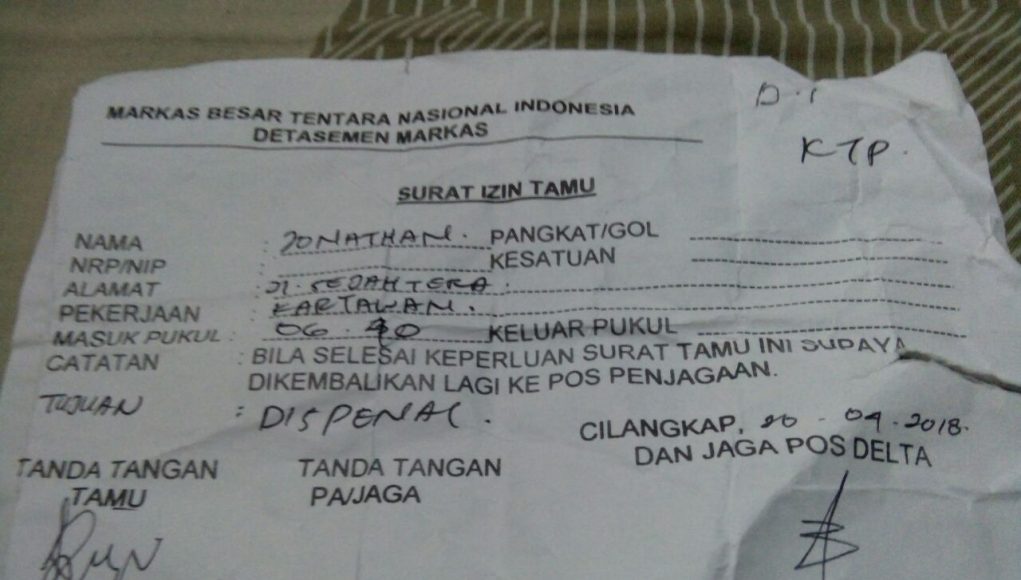 D.1
MARKAS BESAR TENTARA NASIONAL INDONESIA
DETASEMEN MARKAS
KTP.
SURAT IZIN TAMU
NAMA : JONATHAN. PANGKAT/GOL
NRP/NIP : KESATUAN
ALAMAT : Jl. SEJAHTERA.
PEKERJAAN : KARYAWAN.
MASUK PUKUL : 06.40 KELUAR PUKUL
CATATAN : BILA SELESAI KEPERLUAN SURAT TAMU INI SUPAYA
DIKEMBALIKAN LAGI KE POS PENJAGAAN.
TUJUAN : DISPENAL.
CILANGKAP, 20 - 04 - 2018.
DAN JAGA POS DELTA
TANDA TANGAN TANDA TANGAN
TAMU PA/JAGA